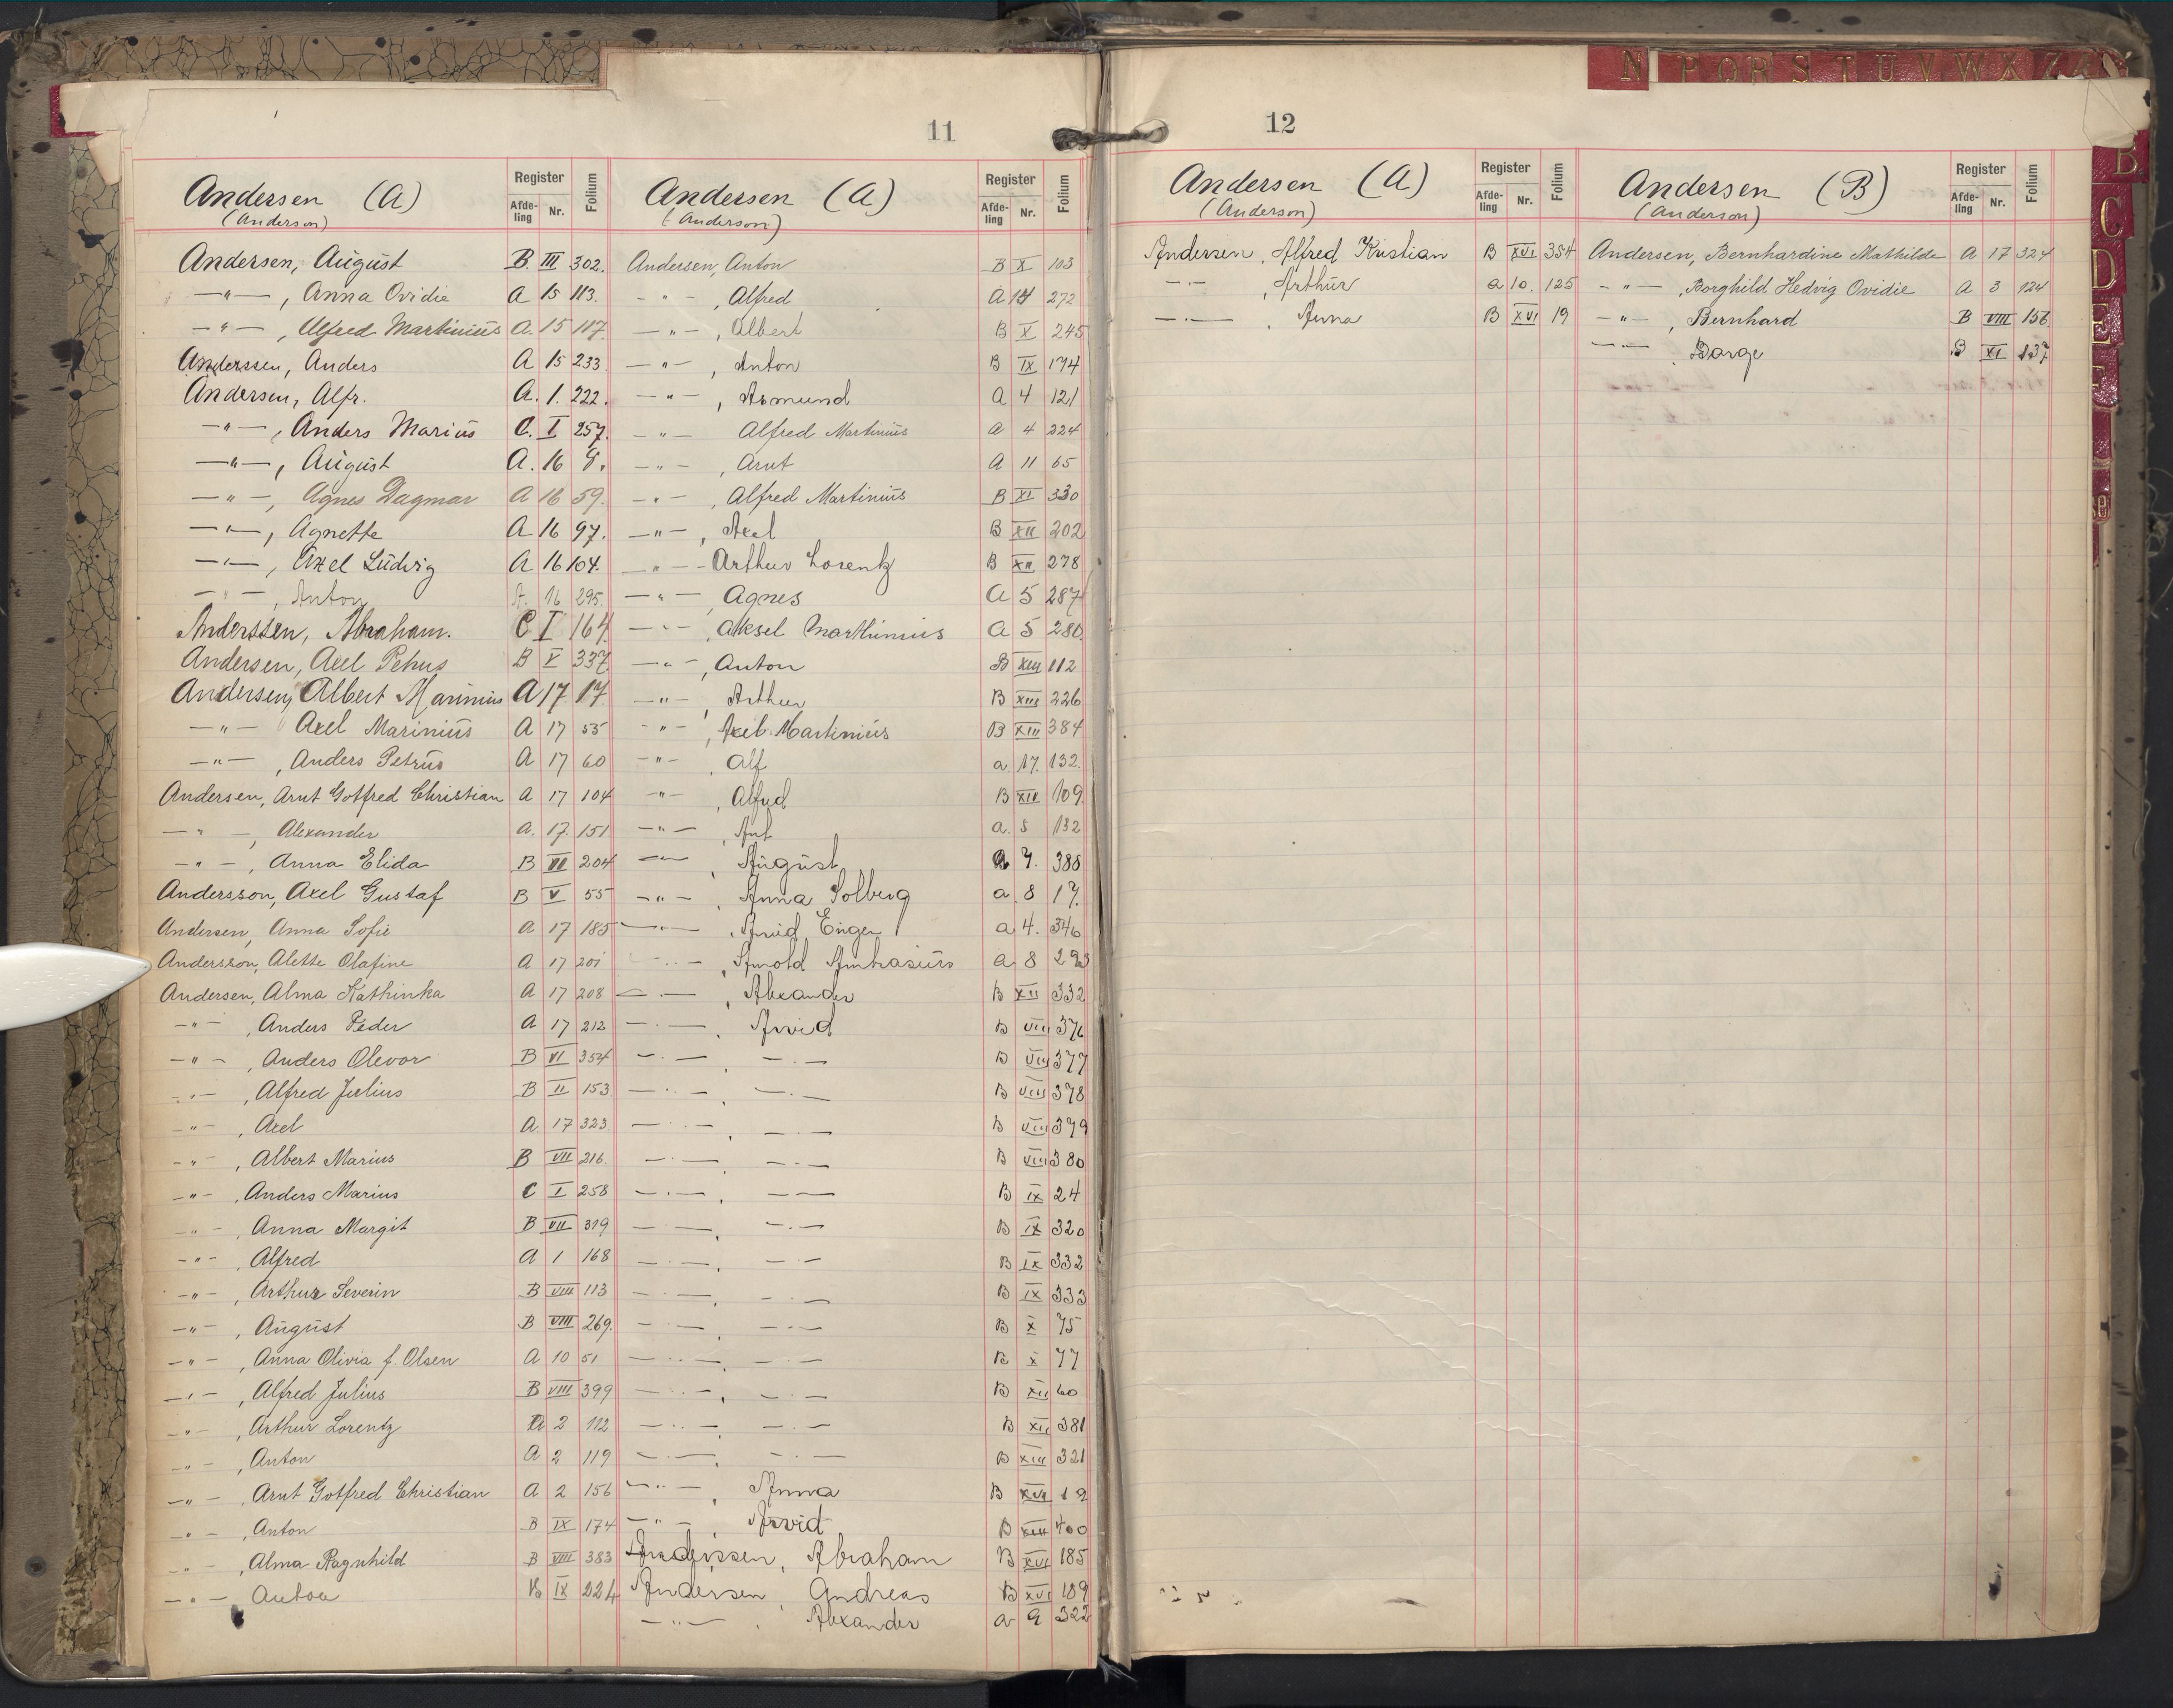 11
Andersen (A)
(Anderson)
Register
Afde-ling Nr. Folium
Andersen, August B. III 302.
—"—, Anna Ovidie A 15 113.
—"—, Alfred Martinius A. 15 117.
Anderssen, Anders A 15 233.
Andersen, Alfr. A. 1. 222.
—"—, Anders Marius C. I 257.
—"—, August A. 16 8.
—"—, Agnes Dagmar A 16 59.
—"—, Agnette A 16 97.
—"—, Axel Ludvig A 16 104.
—"—, Anton A. 16 295.
Anderssen, Abraham. C I 164
Andersen, Axel Petrus B V 337
Andersen, Albert Marinius A 17 17
—"— Axel Marinius A 17 55
—"—, Anders Petrus A 17 60
Andersen, Arnt Gotfred Christian A 17 104
—"—, Alexander A. 17. 151
—"—, Anna Elida B VII 204
Andersson, Axel Gustaf B V 55
Andersen, Anna Sofie A 17 185
Andersson, Alette Olafine A 17 201
Andersen, Alma Kathinka A 17 208
—"—, Anders Peder A 17 212
—"—, Anders Olevar B VI 354
—"—, Alfred Julius B II 153
—"—, Axel A. 17 323
—"—, Albert Marius B VII 216.
—"—, Anders Marius C I 258
—"—, Anna Margit B VII 319
—"—, Alfred A 1 168
—"—, Arthur Severin B VIII 113
—"—, August B VIII 269.
—"—, Anna Olivia f. Olsen A 10 51
—"—, Alfred Julius B VIII 399
—"—, Arthur Lorentz A 2 112
—"—, Anton A 2 119
—"—, Arnt Gotfred Christian A 2 156
—"—, Anton B IX 174
—"—, Alma Ragnhild B VIII 383
—"— Anton B IX 224
Andersen (A)
(Anderson)
Register
Afde-ling Nr. Folium
Andersen, Anton B X 103
—"—, Alfred A 14 272
—"—, Albert B X 245
—"—, Anton B IX 174
—"—, Asmund A 4 121
—"— Alfred Martinius A 4 224
—"—, Arnt A 11 65
—"—, Alfred Martinius B XI 330
—"—, Axel B XII 202
—"— Arthur Lorentz B XII 278
—"— Agnes A 5 287
—"—, Aksel Marthinius A 5 280.
—"—, Anton B XIII 112
—"—, Arthur B XIII 226
—"—, Axel Martinius B XIII 384
—"—, Alf a 17. 132.
—"—, Alfred B XIV 109.
—"—, Arnt a. 5 132
—"—, August a 7. 388
—"—, Anna Solberg a 8 17.
—"—, Arvid Enger a 4. 346
—"—, Arnold Ambrasius a 8 293
—"—, Alexander B XII 332
—"—, Arvid B VIII 376
—"— —"— B VIII 377
—"—, —"— B VIII 378
—"—, —"— B VIII 379
—"—, —"— B VIII 380
—"—, —"— B IX 24
—"—, —"— B IX 320
—"—, —"— B IX 332
—"—, —"— B IX 333
—"—, —"— B X 75
—"—, —"— B X 77
—"—, —"— B XII 60
—"—, —"— B XII 381
—"—, —"— B XIII 321
—"—, Anna B XVI 19
—"—, Arvid B XIII 400
Anderssen, Abraham B XVI 185
Andersen, Andreas B XVI 189
—"—, Alexander a 9 322
12
Andersen (A)
(Anderson)
Register
Afde-ling Nr. Folium
Andersen, Alfred Kristian B XVI 354
—"—, Arthur a 10. 125
—"—, Anna B XVI 19
Andersen (B)
(Anderson)
Register
Afde-ling Nr. Folium
Andersen, Bernhardine Mathilde A 17 324
—"—, Borghild Hedvig Ovidie A 3 124
—"—, Bernhard B VIII 156
—"—, Borge B XI 137
N P Q R S T U V W X Z
B
C
D
E
F